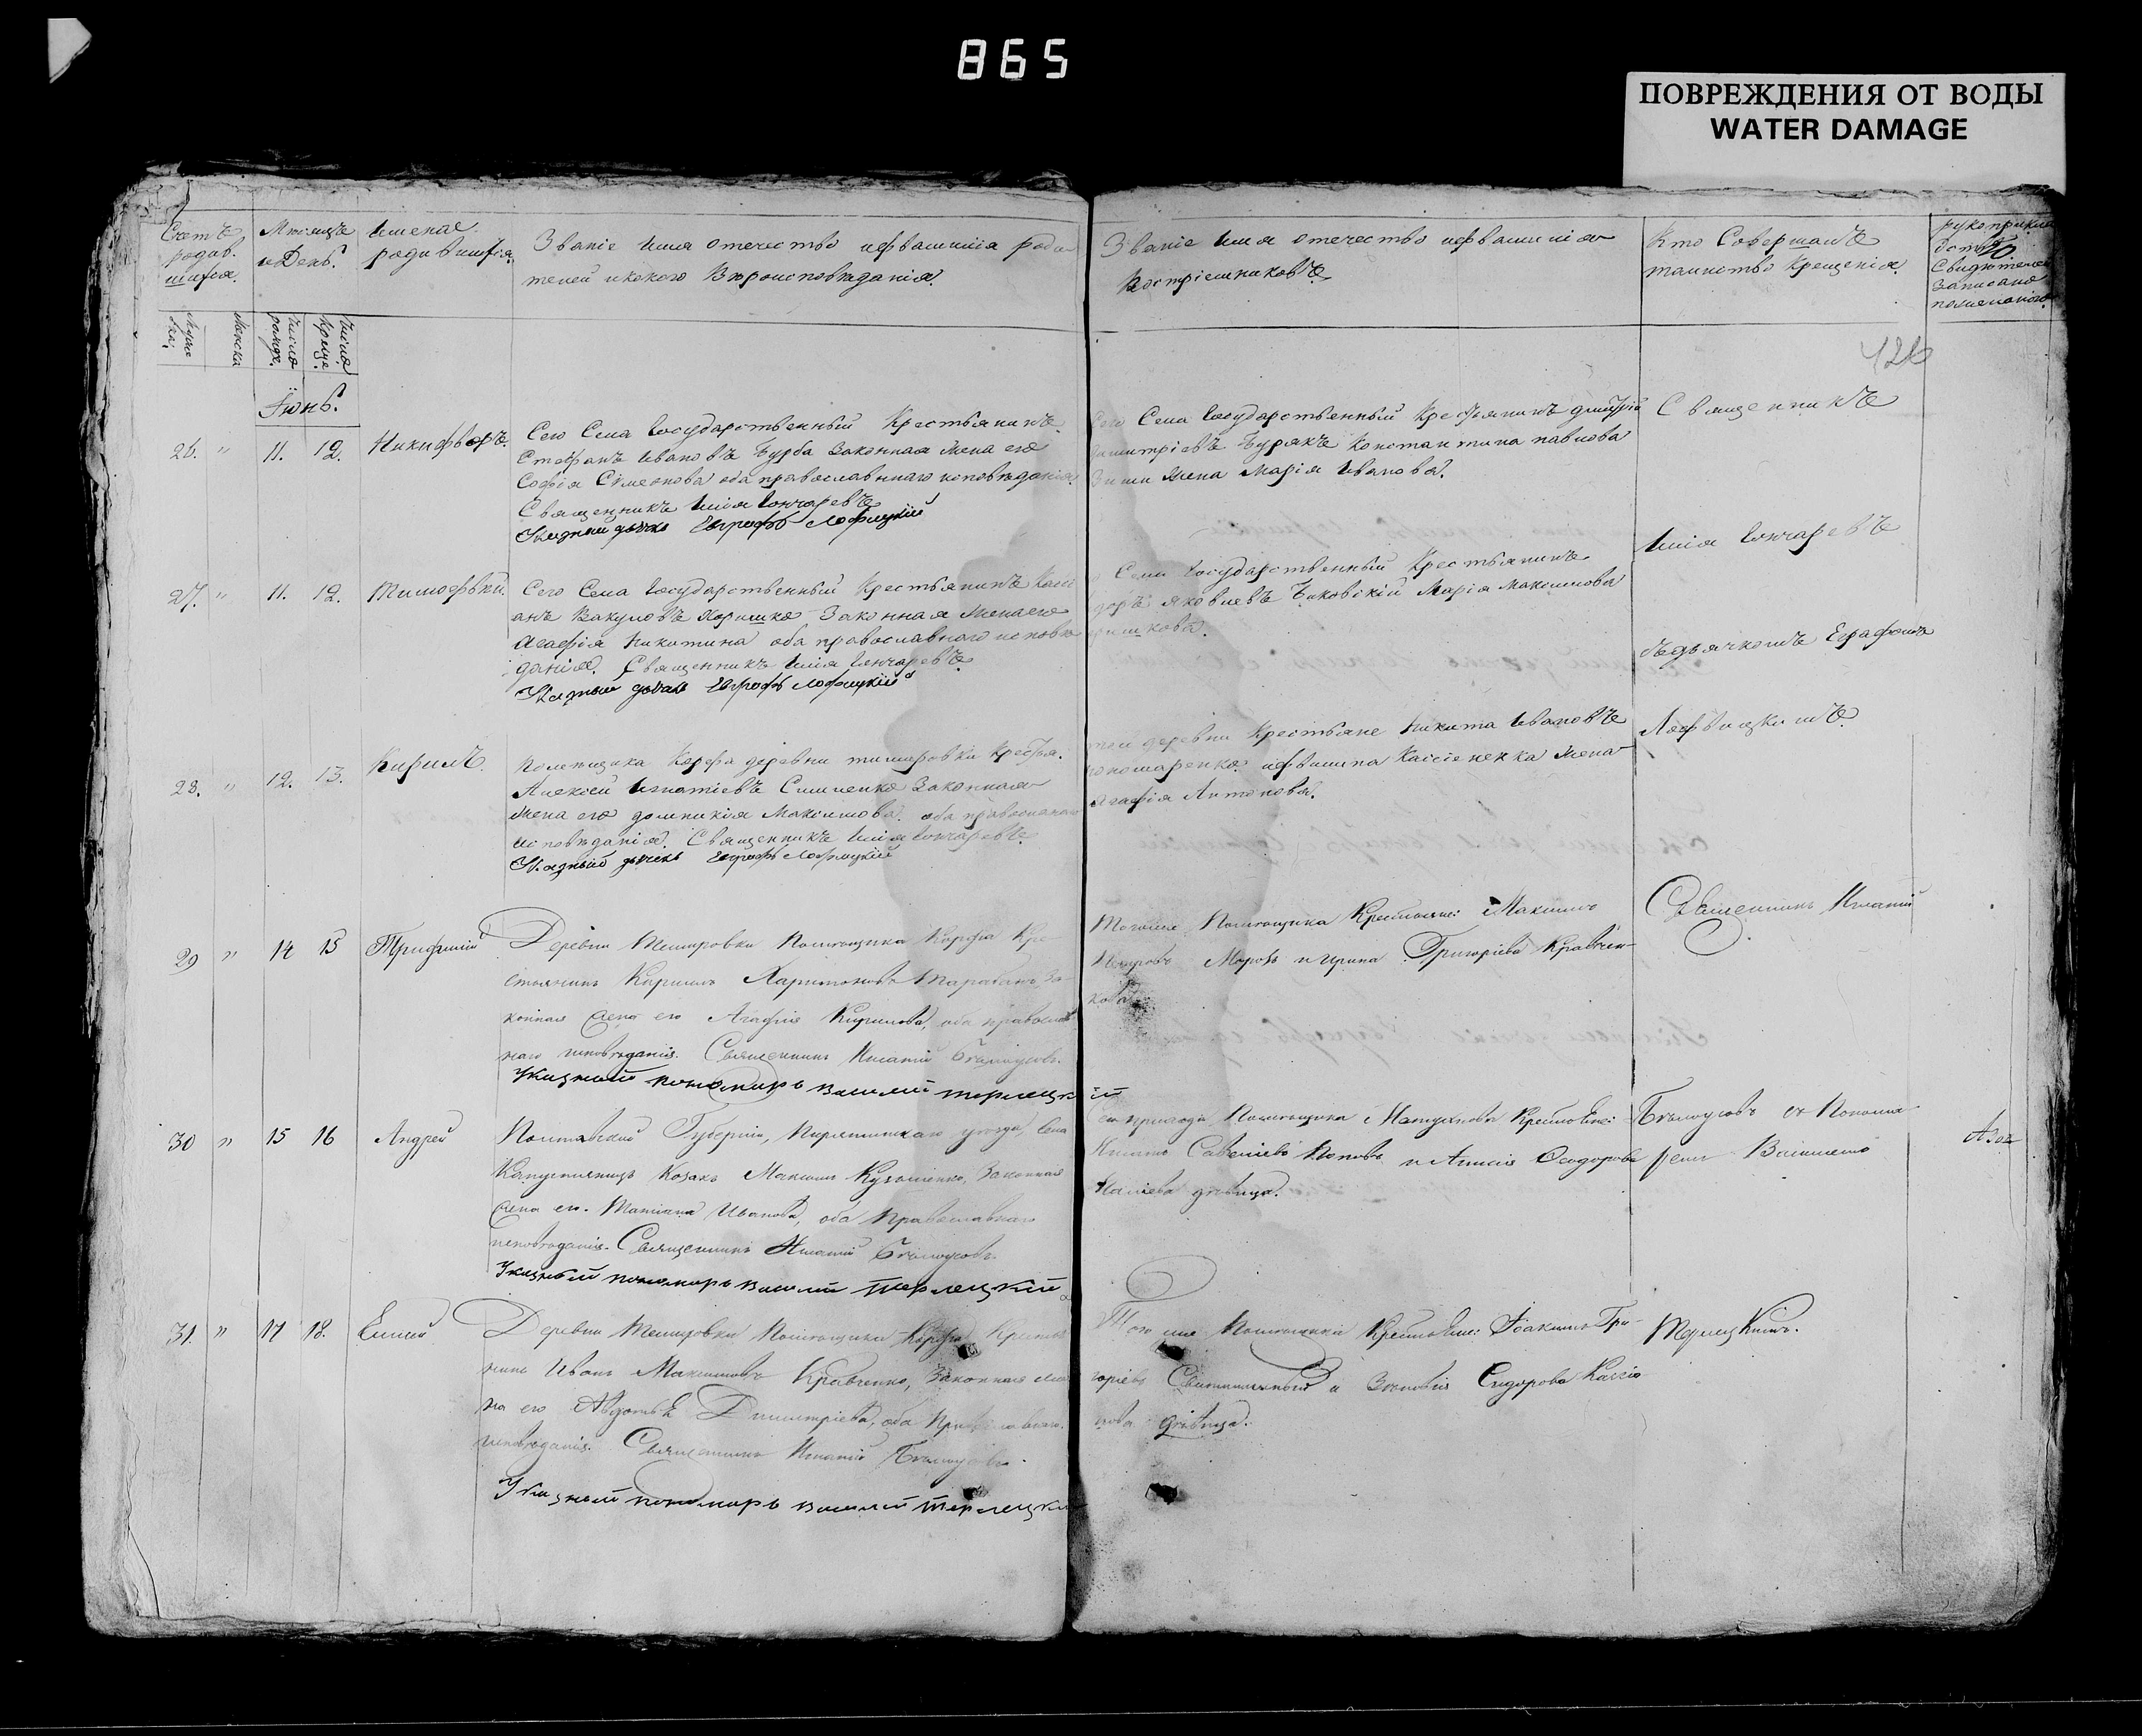 865
ПОВРЕЖДЕНИЯ ОТ ВОДЫ
WATER DAMAGE
Счетъ
родив.
шихся.
Мѣсяцъ
и День.
Имена
родившихся.
Званіе Имя отечество и фамилія роди
телей и какого Вѣроисповѣданія.
Званіе Имя отечество и фамилія
Воспріемниковъ
Кто Совершалъ
таинство Крещенія.
рукоприкла
дство
Свидѣтелей
Записано
пожеланію.
Муже
ска.
Женска
Число
рожд.
Число
Креще.
426
Іюнь.
26. " 11. 12. Никифоръ.
Сего Села Государственный Крестьянинъ
Стефанъ Ивановъ Бурба Законная Жена его
Софія Сѵмеонова оба православнаго исповѣданія.
Священникъ Илія Гончаревъ
Указный дьчекъ Евграфъ Лофицкій
Сего Села Государственный Крестьянинъ Димитрій
Димитріевъ Бурякъ Константина павлова
Жена Марія Иванова.
Священникъ
Илія Гончаревъ
27. " 11. 12. Тимофѣй.
Сего Села Государственный Крестьянинъ Касі
анъ Вакуловъ Хоришко Законная Жена его
Агафія Никитина оба православнаго исповѣ
данія. Священникъ Илія Гончаревъ
Указный дьчекъ Евграфъ Лофицкій
Села Государственный Крестьянинъ
Яковлевъ Биковскій Марія Максимова
ришкова.
Съ дьячкомъ Еграфомъ
Лофицкимъ.
28. " 12. 13. Кирилъ.
Помещика Корфа деревни тимировки Крестья.
Алексѣй Игнатіевъ Симиенко Законная
Жена его домникія Максимова. оба православнаго
исповѣданія. Священникъ Илія Гончаревъ
Указный дьчекъ Евграфъ Лофицкій
той деревни Крестьяне Никита Ивановъ
Пономаренко и филипа Касіененка Жена
Агафія Антонова.
29 " 14 15 Трифилій
Деревни Темировки Помѣщика Корфа Кре-
стьянинъ Кирилъ Харитоновъ Тараванъ, За-
конная жена его Агафія Кирилова, оба православ
наго исповѣданія. Священникъ Игнатій Бѣлоусовъ.
Указный пономарь Василій терлецкій
Тогоже Помѣщика Крестьяне: Максимъ
Петровъ Морозъ и Ирина Григоріева Кравчен-
кова.
Священникъ Игнатій
30 " 15 16 Андрей
Полтавской Губерніи, Пирятинскаго уѣзда, Села
Капустинецъ Козакъ Максимъ Кузьменко, Законная
жена его Татіана Иванова, оба Православнаго
исповѣданія. Священникъ Игнатій Бѣлоусовъ.
Указный пономарь Василій Терлецкій
прихода Помѣщика Мантуанова Крестьяне:
Савеліевъ Поповъ и Анисія Ѳеодорова
дѣвица.
Бѣлоусовъ съ Понома-
ремъ Василіемъ
31. " 17 18. Елисей
Деревни Темировки Помѣщика Корфа Крестья
нинъ Иванъ Максимовъ Кравченко, Законная же-
на его Авдотья Димитріева, оба Православнаго
исповѣданія. Священникъ Игнатій Бѣлоусовъ.
Указный пономарь Василій Терлецкій
Того же Помѣщика Крестьяне: Іоакимъ Гри-
горіевъ и Зиновія Сидорова Кассіа
нова дѣвица.
Терлецкимъ.